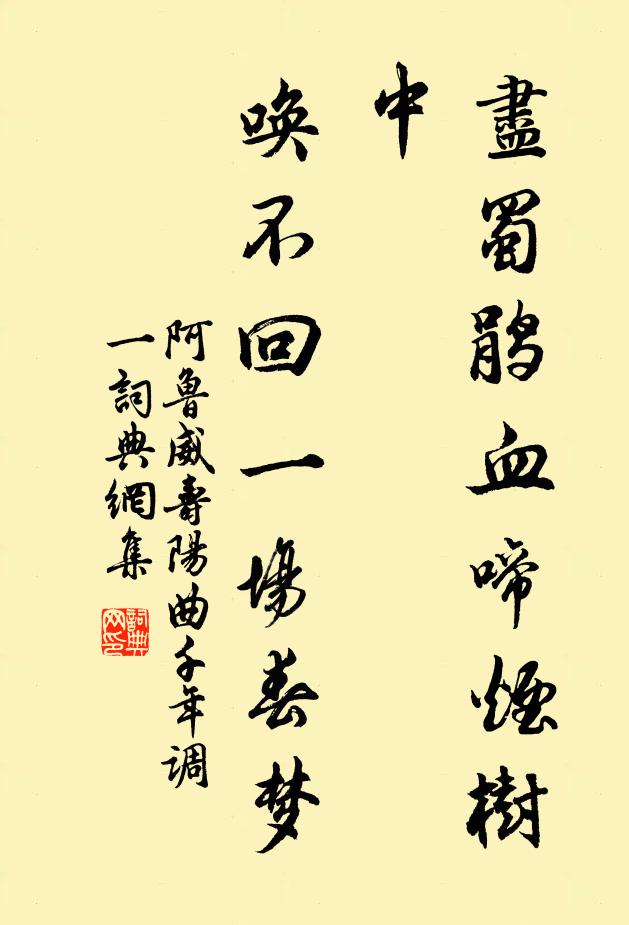 盡蜀鹃血啼煙樹
中
唤不回一場春梦
阿魯威壽陽曲千年调
一詞典網集
詞典
网印